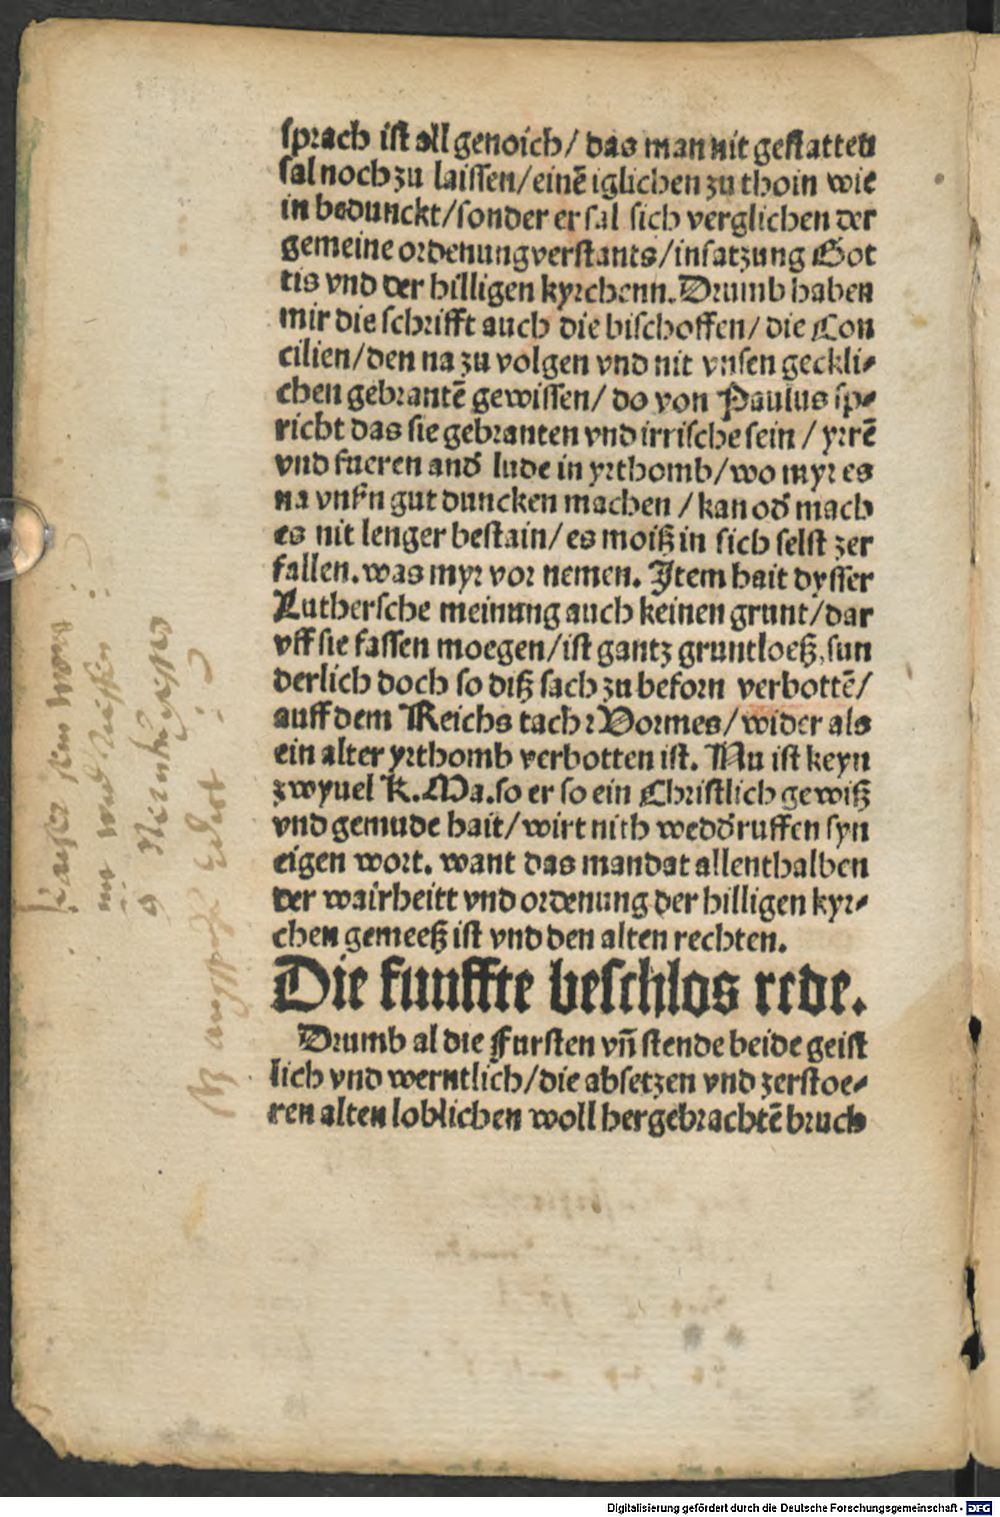 ſprach iſt all genoich / das man nit geſtatten
ſal noch zu laiſſen / einē iglichen zu thoin wie
in bedunckt / ſonder er ſal ſich verglichen der
gemeine ordenung verſtants / inſatzung Got
tis vnd der hilligen kyrchenn. Drumb haben
mir die ſchrifft auch die biſchoffen / die Con
cilien / den na zu volgen vnd nit vnſen geckli⸗
chen gebrantē gewiſſen / do von Paulus ſp⸗
richt das ſie gebranten vnd irriſche ſein / yrrē
vnd fueren and̄ lude in yrthomb / wo myr es
na vnſn gut duncken machen / kan od̄ mach
es nit lenger beſtain / es moiß in ſich ſelſt zer
fallen. was myr vor nemen. Item hait dyſſer
Lutherſche meinung auch keinen grunt / dar
vff ſie faſſen moegen / iſt gantz gruntloeß, ſun
derlich doch ſo diß ſach zu beforn verbottē /
auff dem Reichs tach zVormes / wider als
ein alter yrthomb verbotten iſt. Nu iſt keyn
zwyuel K. Ma. ſo er ſo ein Chriſtlich gewiß
vnd gemude hait / wirt nith wedd̄ruffen ſyn
eigen wort. want das mandat allenthalben
der wairheitt vnd ordenung der hilligen kyr⸗
chen gemeeß iſt vnd den alten rechten.
Die funffte beſchlos rede.
Drumb al die Furſten vn̄ ſtende beide geiſt
lich vnd werntlich / die abſetzen vnd zerſtoe⸗
ren alten loblichen woll hergebrachtē bruch
Digitalisierung gefördert durch die Deutsche Forschungsgemeinschaft - DFG